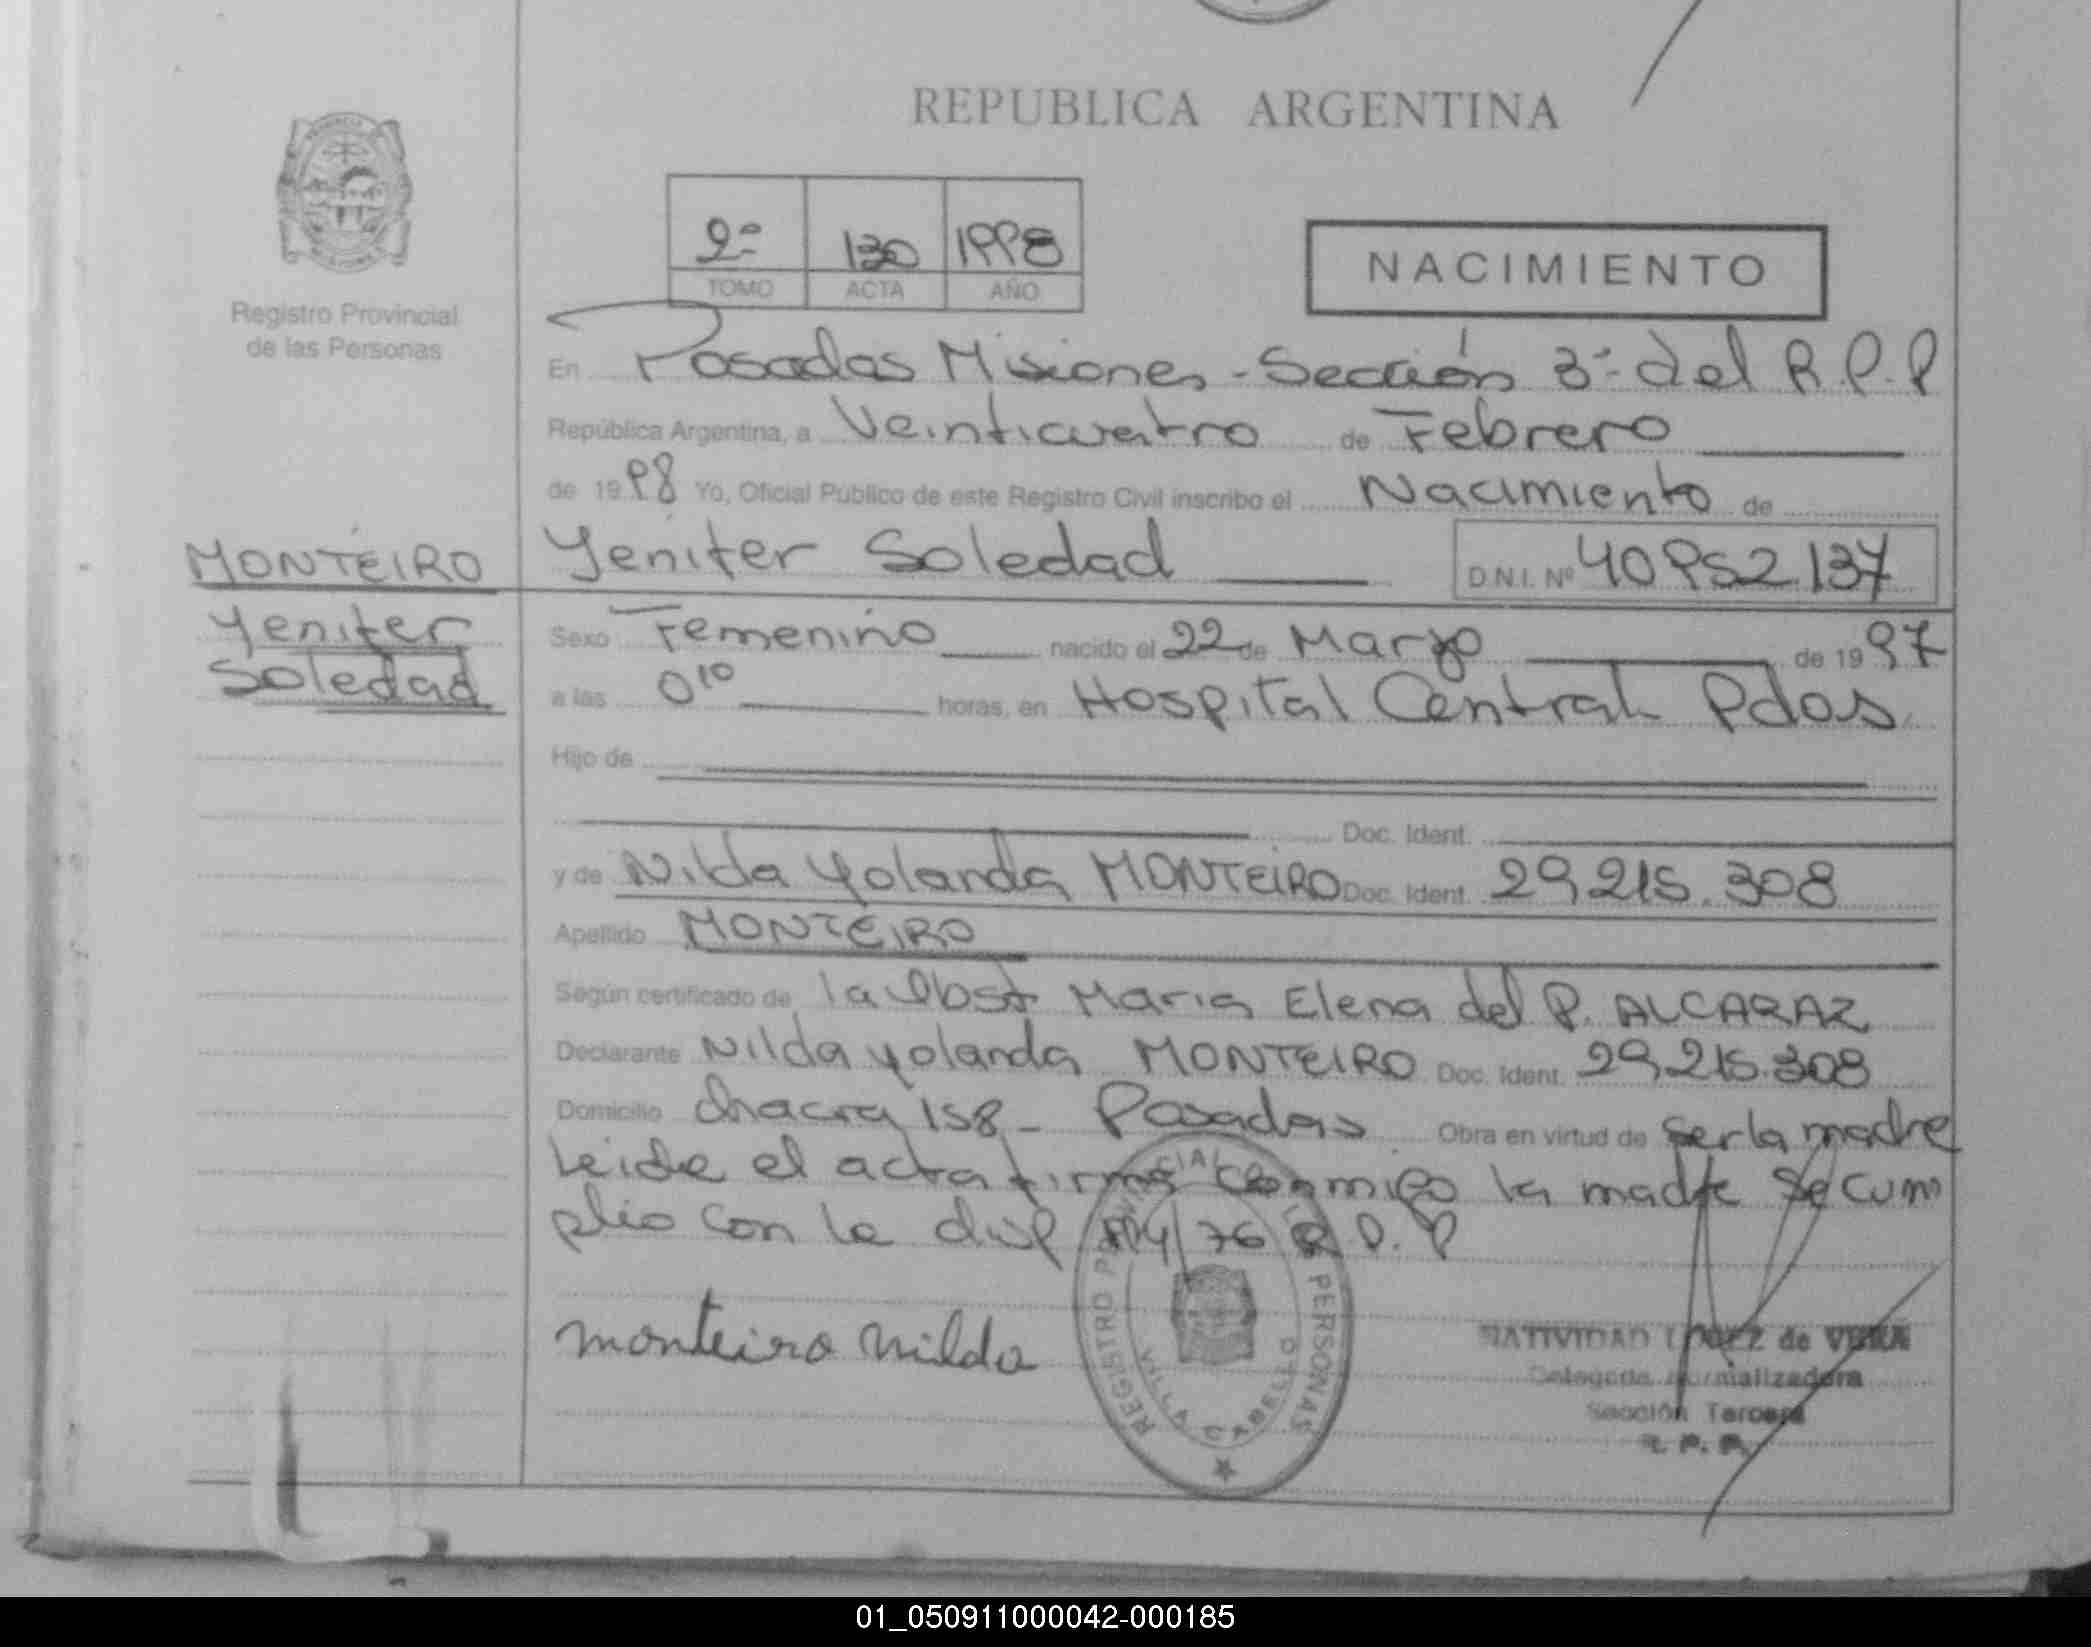 REPUBLICA ARGENTINA
2º 130 1998
TOMO ACTA AÑO
NACIMIENTO
Registro Provincial
de las Personas
En Posadas Misiones - Sección 3º del R.P.P
República Argentina, a Veinticuatro de Febrero
de 1998 Yo, Oficial Público de este Registro Civil inscribo el Nacimiento de
MONTEIRO
Yenifer Soledad
D.N.I. Nº 40.952.137
Yenifer
Soledad
Sexo Femenino nacido el 22 de Marzo de 1997
a las 0¹⁰ horas, en Hospital Central Pdas.
Hijo de
Doc. Ident.
y de Nilda Yolanda MONTEIRO Doc. Ident. 29.215.308
Apellido MONTEIRO
Según certificado de la Obst Maria Elena del P. ALCARAZ
Declarante Nilda Yolanda MONTEIRO Doc. Ident. 29.215.308
Domicilio chacra 158 - Posadas Obra en virtud de ser la madre
Leida el acta firma conmigo la madre Se cum
plio con la disp /76 R.P.P
monteiro nilda
REGISTRO PROVINCIAL PERSONAS
VILLA CABELLO
NATIVIDAD LOPEZ de VERA
Delegada Normalizadora
Sección Tercera
R.P.P.
01_050911000042-000185